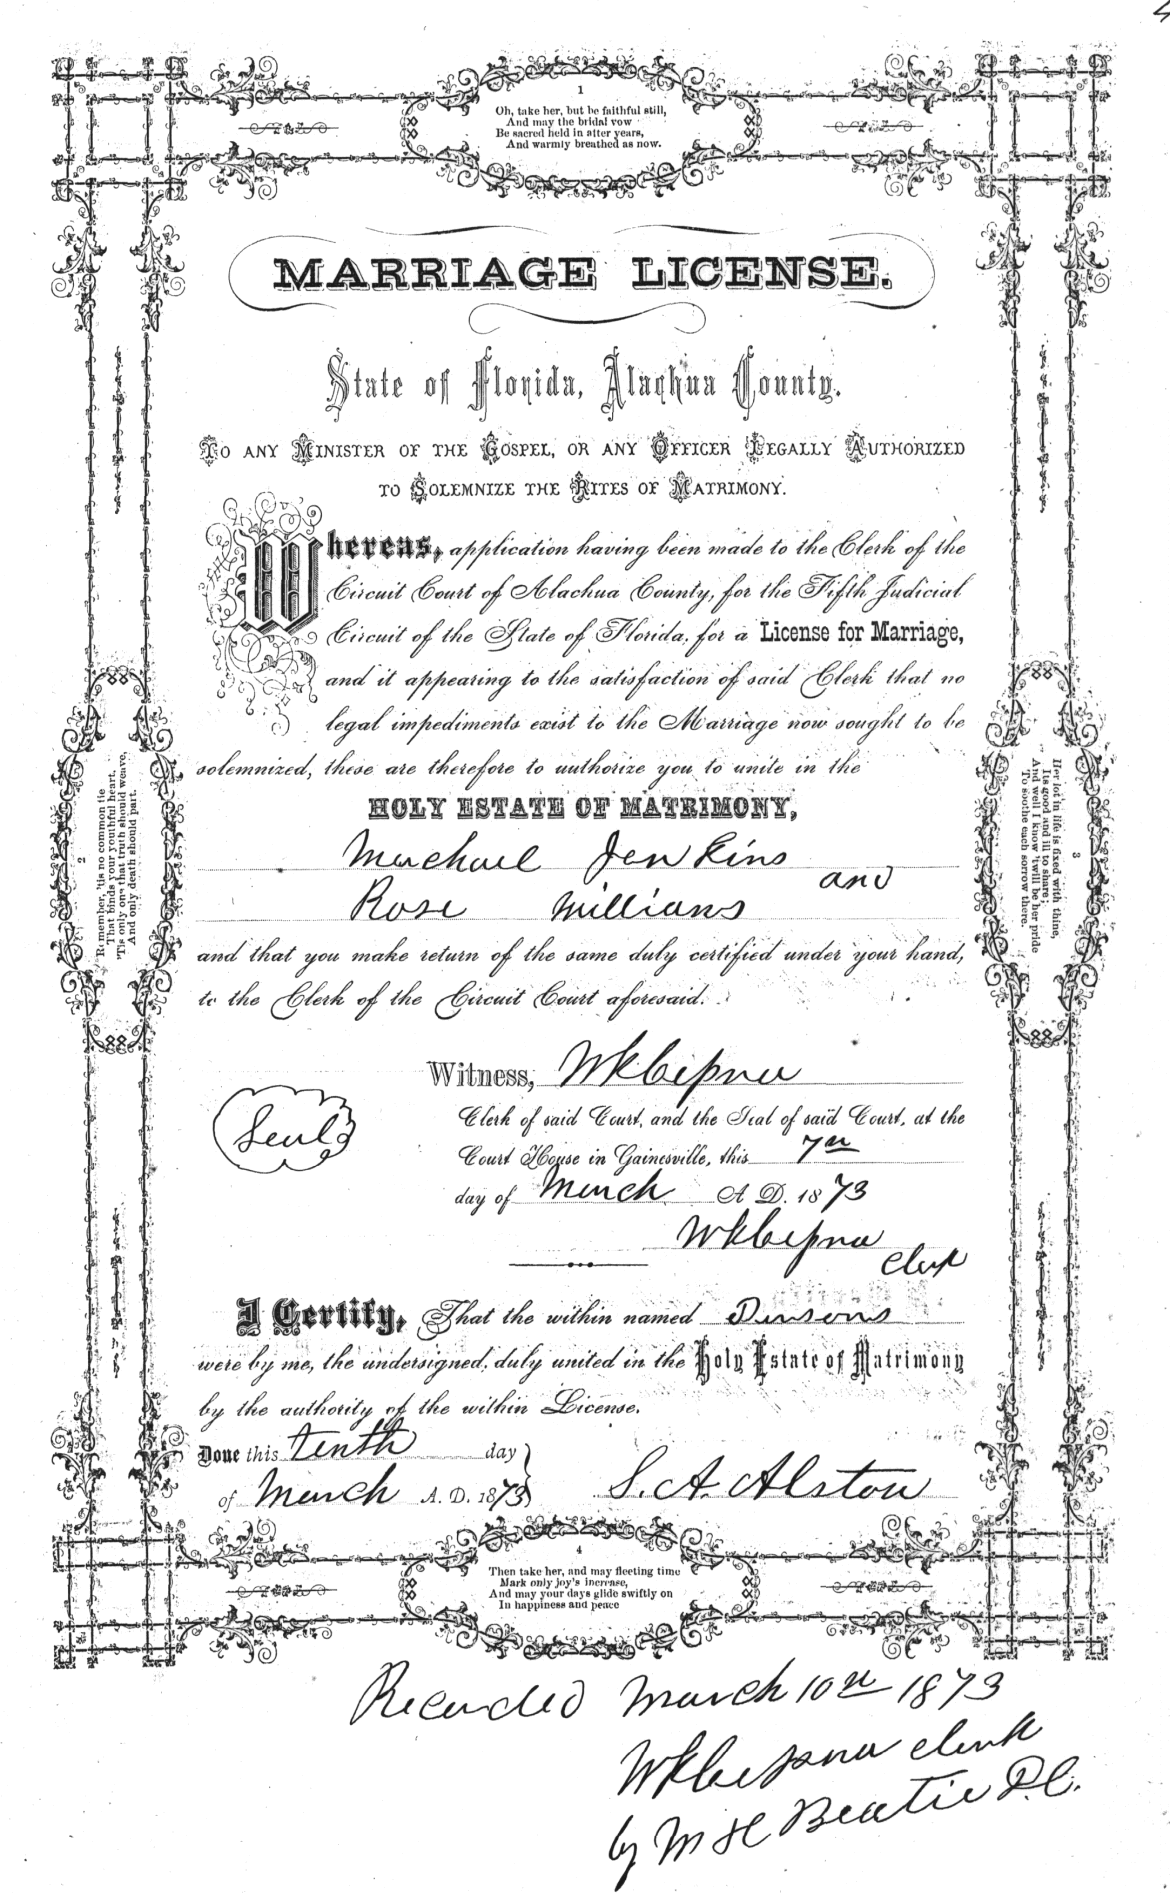 4
1
Oh, take her, but be faithful still,
And may the bridal vow
Be sacred held in after years,
And warmly breathed as now.
MARRIAGE LICENSE.
State of Florida, Alachua County.
TO ANY MINISTER OF THE GOSPEL, OR ANY OFFICER LEGALLY AUTHORIZED
TO SOLEMNIZE THE RITES OF MATRIMONY.
Whereas, application having been made to the Clerk of the
Circuit Court of Alachua County, for the Fifth Judicial
Circuit of the State of Florida, for a License for Marriage,
and it appearing to the satisfaction of said Clerk that no
legal impediments exist to the Marriage now sought to be
solemnized, these are therefore to authorize you to unite in the
HOLY ESTATE OF MATRIMONY,
Michael Jenkins
and
Rose Williams
and that you make return of the same duly certified under your hand,
to the Clerk of the Circuit Court aforesaid.
2
Remember, 'tis no common tie
That binds your youthful heart,
'Tis only one that truth should weave,
And only death should part.
3
Her lot in life is fixed with thine,
Its good and ill to share;
And well I know 'twill be her pride
To soothe each sorrow there.
Witness, WK Cessna
Seal
Clerk of said Court, and the Seal of said Court, at the
Court House in Gainesville, this 7th
day of March A D. 1873
WK Cessna
Clerk
I Certify, That the within named Persons
were by me, the undersigned, duly united in the Holy Estate of Matrimony
by the authority of the within License.
Done this tenth day
of March A. D. 1873 S. A. Alston
4
Then take her, and may fleeting time
Mark only joy's increase,
And may your days glide swiftly on
In happiness and peace
Recorded March 10th 1873
WK Cessna Clerk
by M H Beatie D.C.